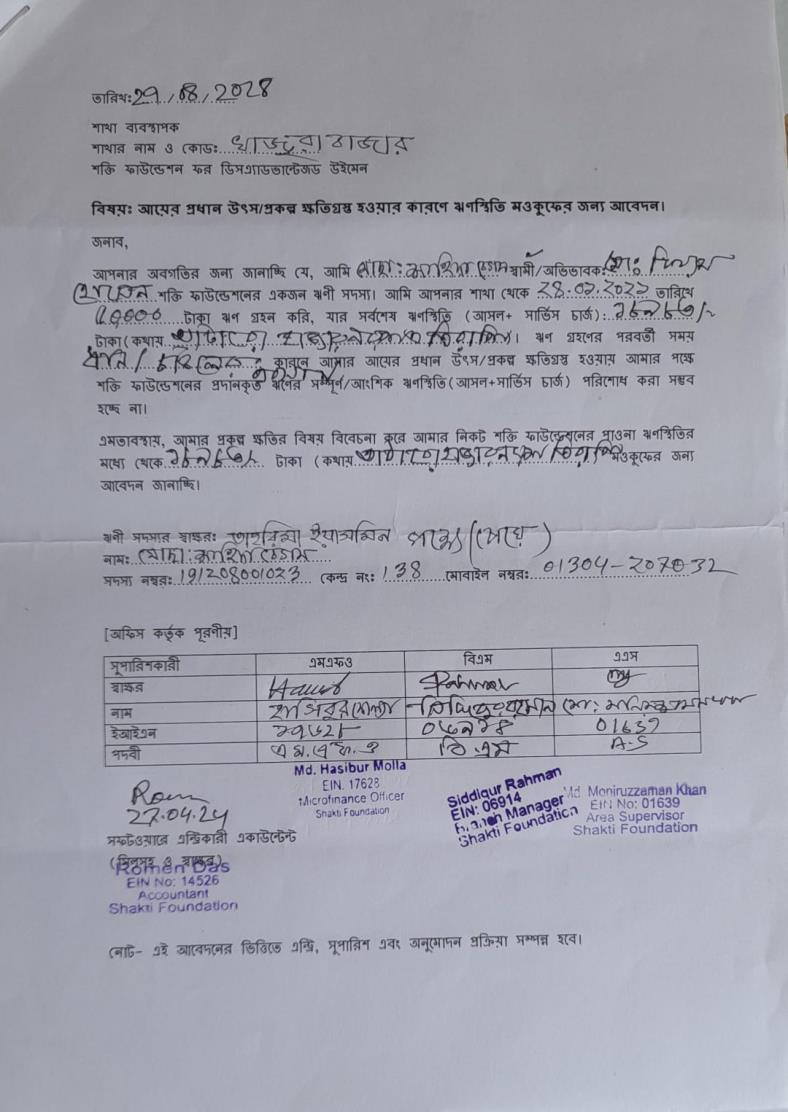 তারিখ: 29/08/2028
শাখা ব্যবস্থাপক
শাখার নাম ও কোড: খাজুরা বাজার
শক্তি ফাউন্ডেশন ফর ডিসএ্যাডভান্টেজড উইমেন
বিষয়ঃ আয়ের প্রধান উৎস/প্রকল্প ক্ষতিগ্রস্থ হওয়ার কারণে ঋণস্থিতি মওকুফের জন্য আবেদন।
জনাব,
আপনার অবগতির জন্য জানাচ্ছি যে, আমি মোছা: স্বামী/অভিভাবক: মো:
হোসেন শক্তি ফাউন্ডেশনের একজন ঋণী সদস্য। আমি আপনার শাখা থেকে তারিখে
টাকা ঋণ গ্রহন করি, যার সর্বশেষ ঋণস্থিতি (আসল+ সার্ভিস চার্জ):
টাকা (কথায় )। ঋণ গ্রহণের পরবর্তী সময়
কারনে আমার আয়ের প্রধান উৎস/প্রকল্প ক্ষতিগ্রস্থ হওয়ায় আমার পক্ষে
শক্তি ফাউন্ডেশনের প্রদানকৃত ঋণের সম্পূর্ণ/আংশিক ঋণস্থিতি(আসল+সার্ভিস চার্জ) পরিশোধ করা সম্ভব
হচ্ছে না।
এমতাবস্থায়, আমার প্রকল্প ক্ষতির বিষয় বিবেচনা করে আমার নিকট শক্তি ফাউন্ডেশনের পাওনা ঋণস্থিতির
মধ্যে থেকে টাকা (কথায় মওকুফের জন্য
আবেদন জানাচ্ছি।
ঋণী সদস্যর স্বাক্ষর: ইয়াসমিন পক্ষে (মেয়ে)
নাম: মোছা:
সদস্য নম্বর: 191208001023 কেন্দ্র নং: 138 মোবাইল নম্বর: 01304-207032
[অফিস কর্তৃক পূরণীয়]
সুপারিশকারী এমএফও বিএম এএস
স্বাক্ষর
নাম হাসিবুর মোল্যা সিদ্দিকুর রহমান মো: মনিরুজ্জামান খান
ইআইএন ১৭৬২৮ ০৬৯১৪ 01639
পদবী এম.এফ.ও বি এম A.S
Md. Hasibur Molla
EIN. 17628
Microfinance Officer
Shakti Foundation
Siddiqur Rahman
EIN: 06914
Branch Manager
Shakti Foundation
Md. Moniruzzaman Khan
EIN No: 01639
Area Supervisor
Shakti Foundation
27.04.24
সফটওয়ারে এন্ট্রিকারী একাউন্টেন্ট
(সিলসহ ও স্বাক্ষর)
Romen Das
EIN No: 14526
Accountant
Shakti Foundation
নোট- এই আবেদনের ভিত্তিতে এন্ট্রি, সুপারিশ এবং অনুমোদন প্রক্রিয়া সম্পন্ন হবে।